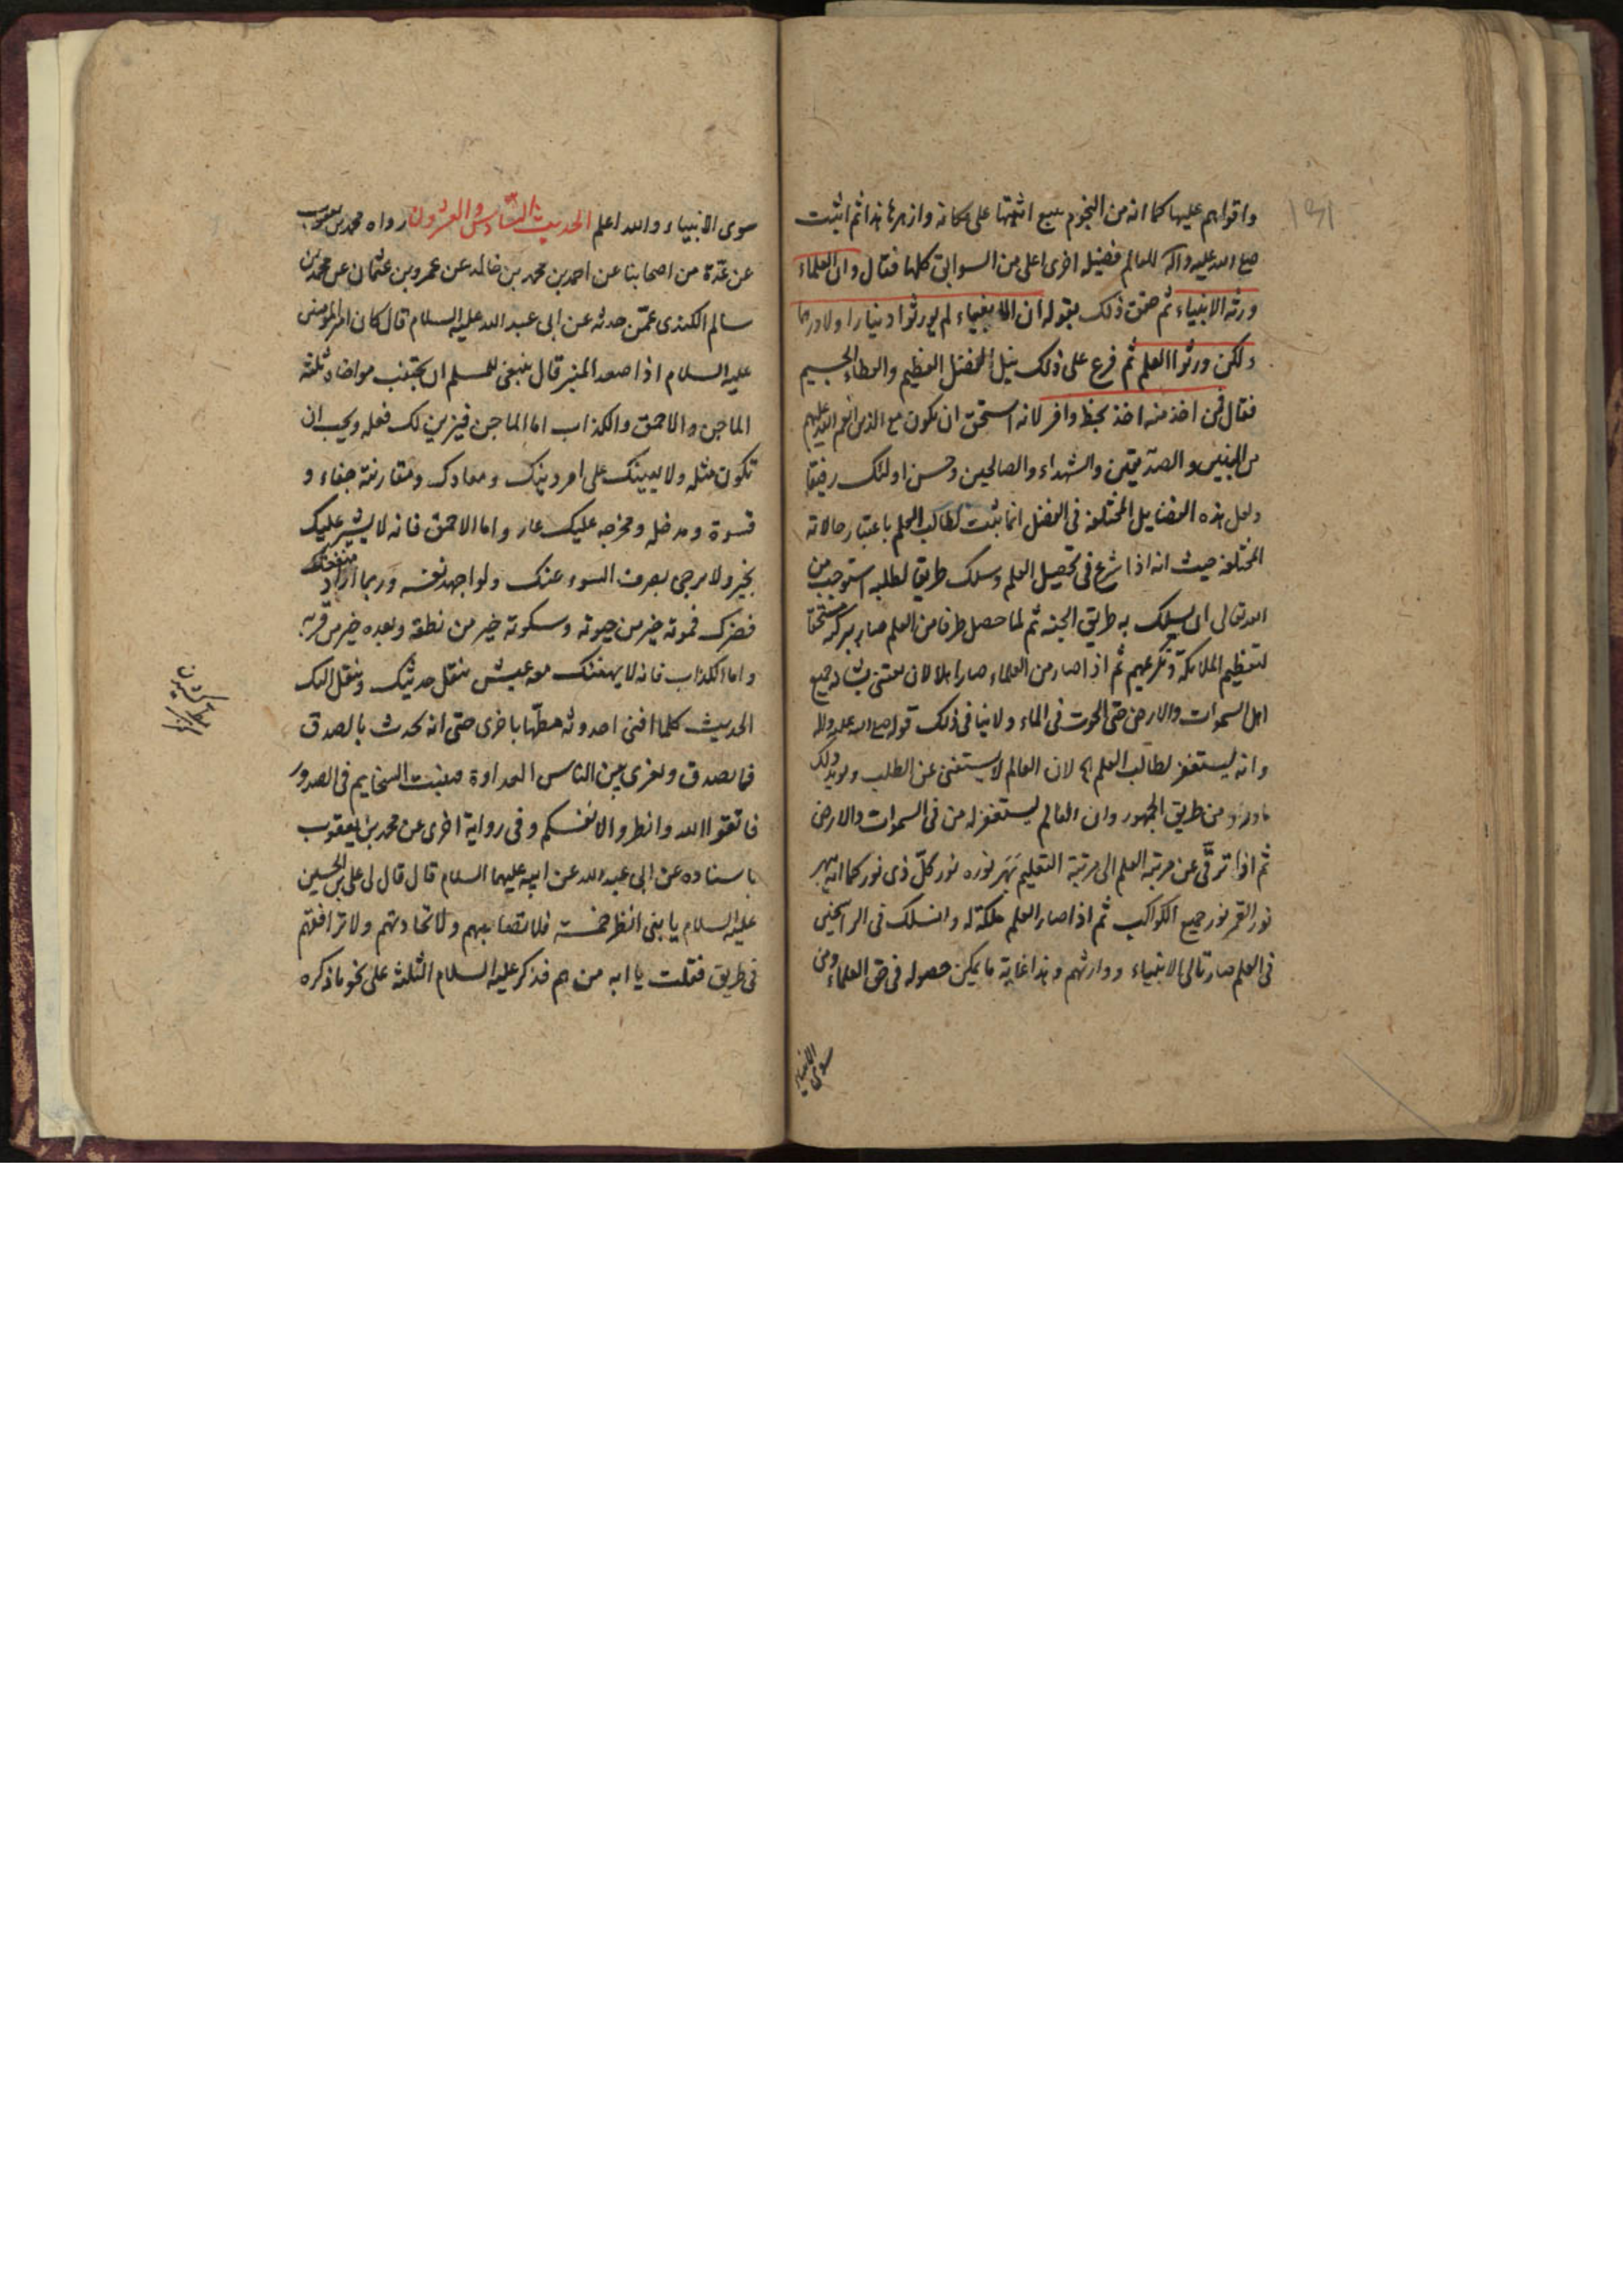 ١٣١
واقواهم عليها كما انه من النجوم سبع اثبتها على مكانه وازهرها هذا ثم اثبت
صلى الله عليه وآله للعالم فضيلة اخرى اعلى من السوابق كلها فقال وان العلماء
ورثة الانبياء ثم حقق ذلك بقوله ان الانبياء لم يورثوا دينارا ولا درهما
ولكن ورثوا العلم ثم فرع على ذلك نيل الفضل العظيم والعطاء الجسيم
فقال فمن اخذ منه اخذ بحظ وافر لانه استحق ان يكون مع الذين انعم الله عليهم
من النبيين والصديقين والشهداء والصالحين وحسن اولئك رفيقا
ولعل هذه الفضايل المختلفة في الفضل انما ثبت لطالب العلم باعتبار حالاته
المختلفة حيث انه اذا شرع في تحصيل العلم وسلك طريقا لطلبه استوجب من
الله تعالى ان يسلك به طريق الجنة ثم لما حصل طرفا من العلم صار ببركته مستحقا
لتعظيم الملائكة وتكريمهم ثم اذا صار من العلماء صار اهلا لان يعتنى بشانه جميع
اهل السموات والارض حتى الحوت في الماء ولا ينافي ذلك قوله صلى الله عليه وآله
وانه يستغفر لطالب العلم اه لان العالم لا يستغنى عن الطلب ويؤيد ذلك
ما ورد من طريق الجمهور وان العالم يستغفر له من في السموات والارض
ثم اذا ترقّى عن مرتبة العلم الى مرتبة التعليم بَهَر نوره نور كلّ ذى نور كما انه يبهر
نور القمر نور جميع الكواكب ثم اذا صار العلم ملكة له وانسلك في الراسخين
في العلم صار تالى الانبياء ووارثهم وهذا غاية ما يمكن حصوله في حق العلماء ومن
سوى الانبياء
سوى الانبياء والله اعلم الحديث السّادس والعشرون رواه محمد بن يعقوب
عن عدّة من اصحابنا عن احمد بن محمد بن خالد عن عمرو بن عثمان عن محمد بن
سالم الكندى عمّن حدثه عن ابى عبد الله عليه السلام قال كان امير المؤمنين
عليه السلام اذا صعد المنبر قال ينبغى للمسلم ان يجتنب مواخاة ثلثة
الماجن والاحمق والكذاب اما الماجن فيزين لك فعله ويحب ان
تكون مثله ولا يعينك على امر دينك ومعادك ومقارنته جفاء و
قسوة ومدخله ومخرجه عليك عار واما الاحمق فانه لا يشير عليك
بخير ولا يرجى بصرف السوء عنك ولو اجهد نفسه وربما اراد منفعتك
فضرك فموته خير من حيوته وسكوته خير من نطقه وبعده خير من قربه
واما الكذاب فانه لا يهنئك معه عيش ينقل حديثك وينقل اليك
الحديث كلما افنى احدوثة مطّها باخرى حتى انه يحدث بالصدق
فما يصدق ويغرى بين الناس العداوة فينبت السخايم في الصدور
فاتقوا الله وانظروا لانفسكم وفي رواية اخرى عن محمد بن يعقوب
باسناده عن ابى عبد الله عن ابيه عليهما السلام قال قال لى على بن الحسين
عليه السلام يا بنى انظر خمسة فلا تصاحبهم ولا تحادثهم ولا ترافقهم
في طريق فقلت يا ابه من هم فذكر عليه السلام الثلثة على نحو ما ذكره